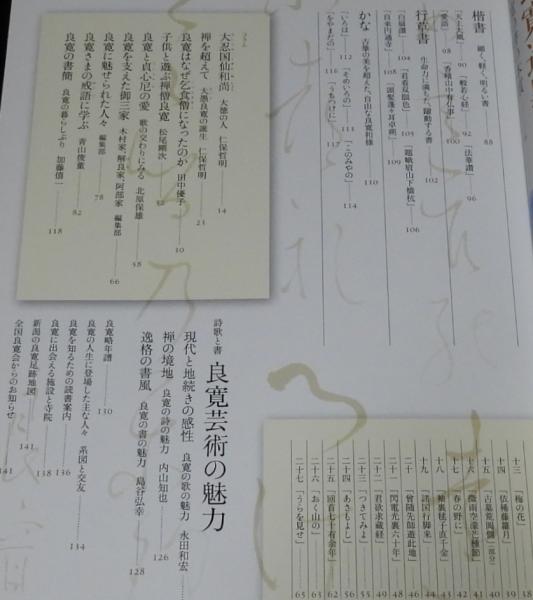 楷書 細く、軽く、明るい書 88
「天上大風」 90 「般若心経」 92 「法華讃」 96
「愛語」 98 「香積山中有仏事」 100
行草書 生命力に満ちた、躍動する書 102
「白扇讃」 104 「君看双眼色」 105 「題峨眉山下橋杭」 106
「自来円通寺」 108 「頭髪蓬々耳卓朔」 109
かな 古筆の美を超えた、自由な良寛和様 110
「いろは」 112 「そめいろの」 111 「このみやの」 114
「をやまだの」 116 「うちつけに」 117
コラム
大忍国仙和尚 大徳の人 仁保哲明 14
禅を超えて 大愚良寛の誕生 仁保哲明 21
子供と遊ぶ禅僧良寛 松尾剛次 32
良寛はなぜ乞食僧になったのか 田中優子 10
良寛と貞心尼の愛 歌の交わりにみる 北原保雄 58
良寛を支えた御三家 木村家、解良家、阿部家 編集部 66
良寛に魅せられた人々 編集部 78
良寛さまの戒語に学ぶ 青山俊董 82
良寛の書簡 良寛の暮らしぶり 加藤僖一 118
十三 「梅の花」 38
十四 「依稀藤蘿月」 39
十五 「古墓荒岡側」(部分) 40
十六 「微雨空濛芒種節」 41
十七 「春の野に」 42
十八 「袖裏毬子直千金」 43
十九 「諸国行脚来」 44
二十 「曾随先師遊此地」 46
二十一 「閃電光裏六十年」 48
二十二 「君欲求蔵経」 49
二十三 「つきてみよ」 55
二十四 「あさもよし」 56
二十五 「回首七十有余年」 62
二十六 「おく山の」 63
二十七 「うらを見せ」 65
詩歌と書 良寛芸術の魅力
現代と地続きの感性 良寛の歌の魅力 永田和宏
禅の境地 良寛の詩の魅力 内山知也 126
逸格の書風 良寛の書の魅力 島谷弘幸 128
良寛略年譜 130
良寛の人生に登場した主な人々 系図と交友 134
良寛を知るための読書案内 136
良寛に出会える施設と寺院 138
新潟の良寛足跡地図 141
全国良寛会からのお知らせ 141